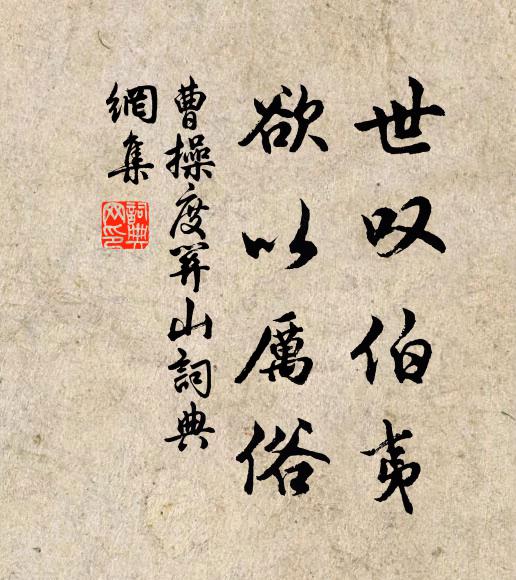 世叹伯夷
欲以厲俗
曹操度关山詞典
網集
詞典
网印